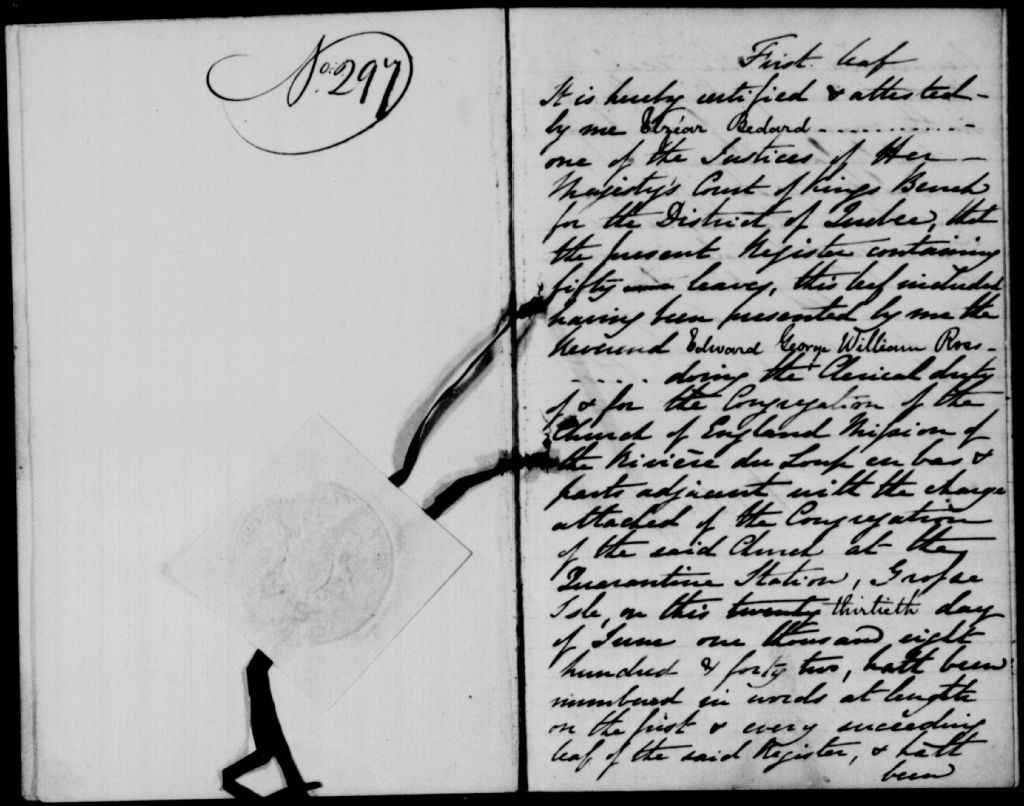 No. 297
First leaf
It is hereby certified & attested -
by me Elzéar Bedard - - - - - - - - - - -
one of the Justices of Her -
Majesty's Court of Kings Bench
for the District of Quebec, that
the present Register containing
fifty leaves, this leaf included
having been presented by me the
Reverend Edward George William Ross -
- - - - doing the Clerical duty
of & for the Congregation of the
Church of England Mission of
the Rivière du Loup en bas &
parts adjacent with the charge
attached of the Congregation
of the said Church at the
Quarantine Station, Grosse
Isle, on this twenty thirtieth day
of June one thousand eight
hundred & forty two, hath been
numbered in words at length
on the first & every succeeding
leaf of the said Register, & hath
been